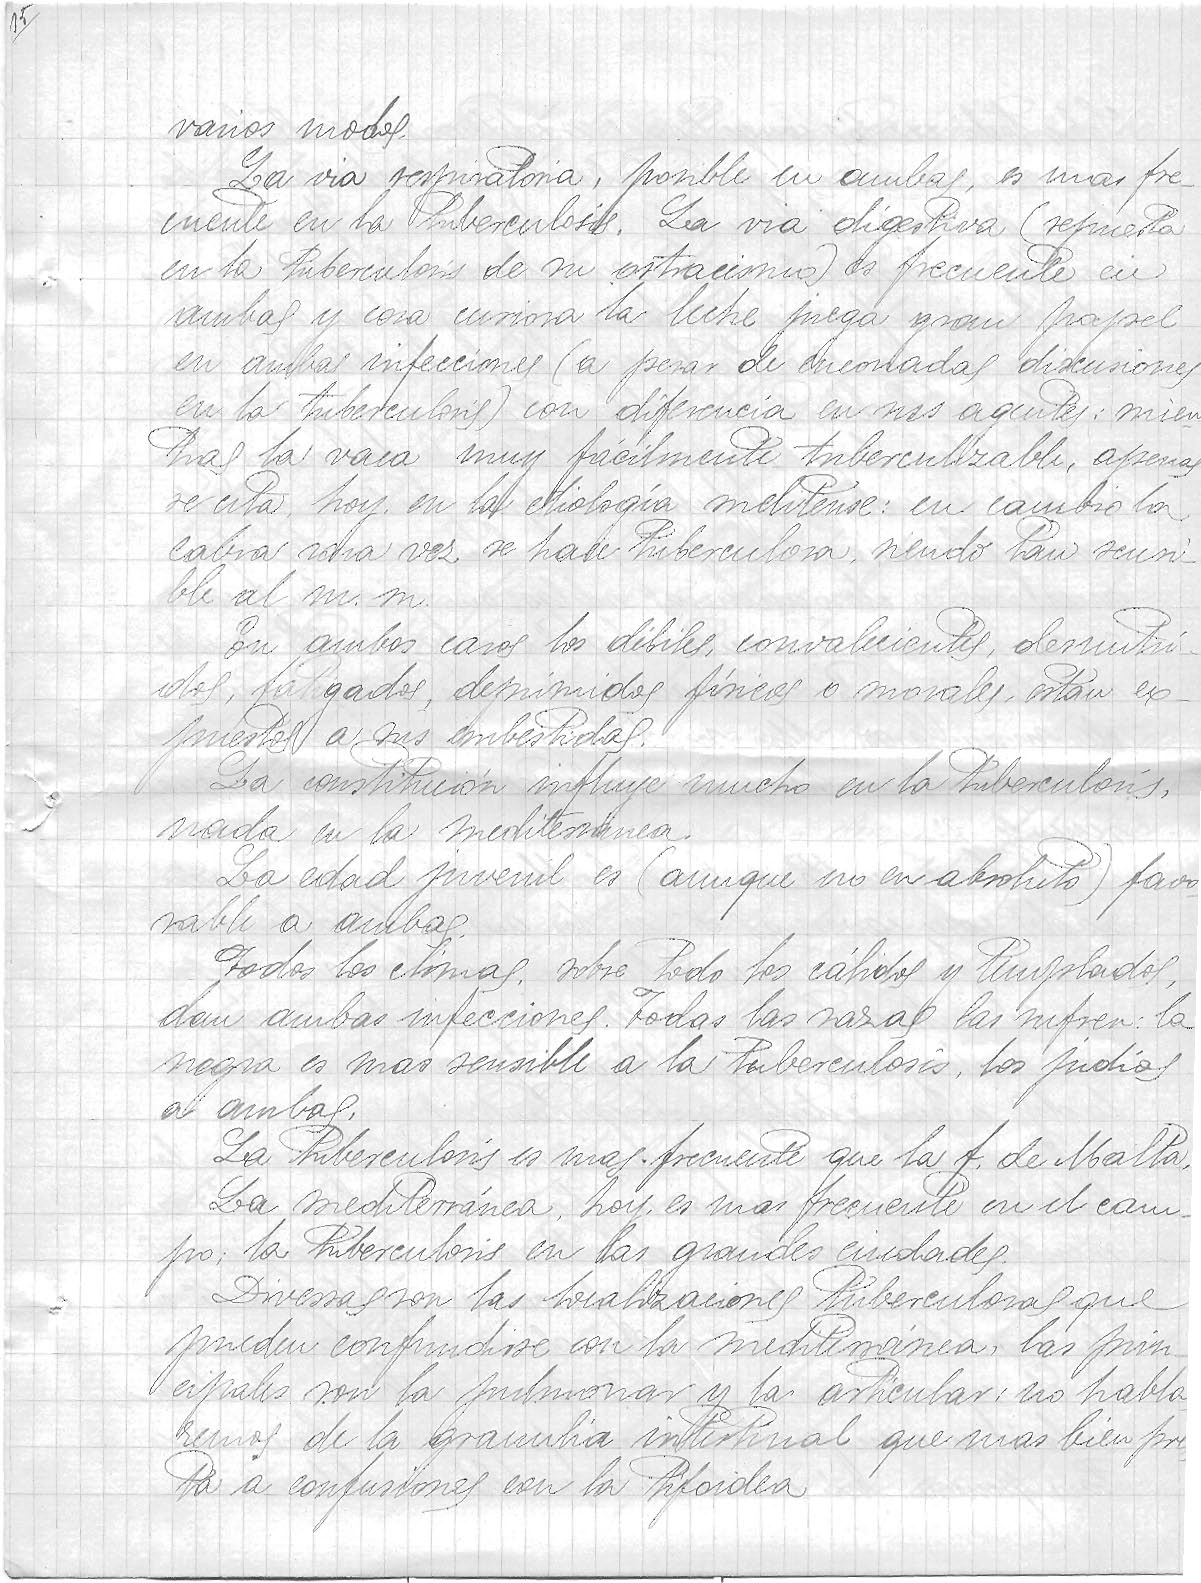 15
varios modos.
La via respiratoria, posible en ambas, es mas fre-
cuente en la tuberculosis. La via digestiva (repuesta
en la tuberculosis de su ostracismo) es frecuente en
ambas y cosa curiosa la leche juega gran papel
en ambas infecciones (a pesar de enconadas discusiones
en la tuberculosis) con diferencia en sus agentes: mien-
tras la vaca muy fácilmente tuberculizable, apenas
se cita, hoy, en la etiología melitense: en cambio la
cabra rara vez se hace tuberculosa, siendo tan sensi-
ble al m. m.
En ambos casos los débiles, convalecientes, desnutri-
dos, fatigados, deprimidos físicos o morales, estan ex-
puestos a sus embestidas.
La constitución influye mucho en la tuberculosis,
nada en la mediterranea.
La edad juvenil es (aunque no en absoluto) favo-
rable a ambas.
Todos los climas, sobre todo los cálidos y templados,
dan ambas infecciones. Todas las razas las sufren: la
negra es mas sensible a la tuberculosis, los judios
a ambas.
La tuberculosis es mas frecuente que la f. de Malta.
La mediterránea, hoy, es mas frecuente en el cam-
po; la tuberculosis en las grandes ciudades.
Diversas son las localizaciones tuberculosas que
pueden confundirse con la mediterránea, las prin-
cipales son la pulmonar y la articular; no habla-
remos de la granulia intestinal que mas bien pres-
ta a confusiones con la tifoidea